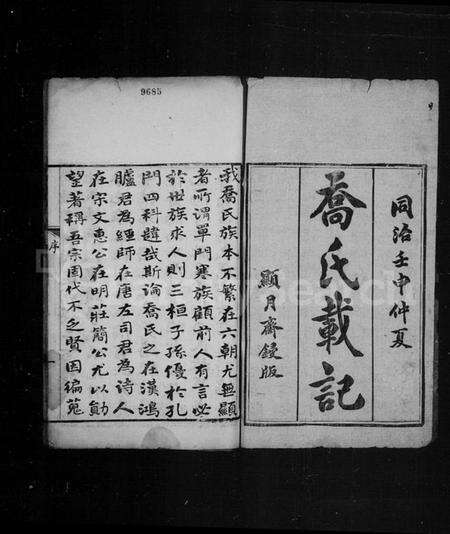 9685
同治壬申仲夏
喬氏載記
顯月齋鋟版
我喬氏族本不繁在六朝尤無顯
者所謂單門寒族顧前人有言必
於世族求人則三桓子孫優於孔
門四科趙哉斯論喬氏之在漢鴻
臚君為經師在唐左司君為詩人
在宋文惠公在明莊簡公尤以勛
望著稱吾宗固代不乏賢因編蒐
序